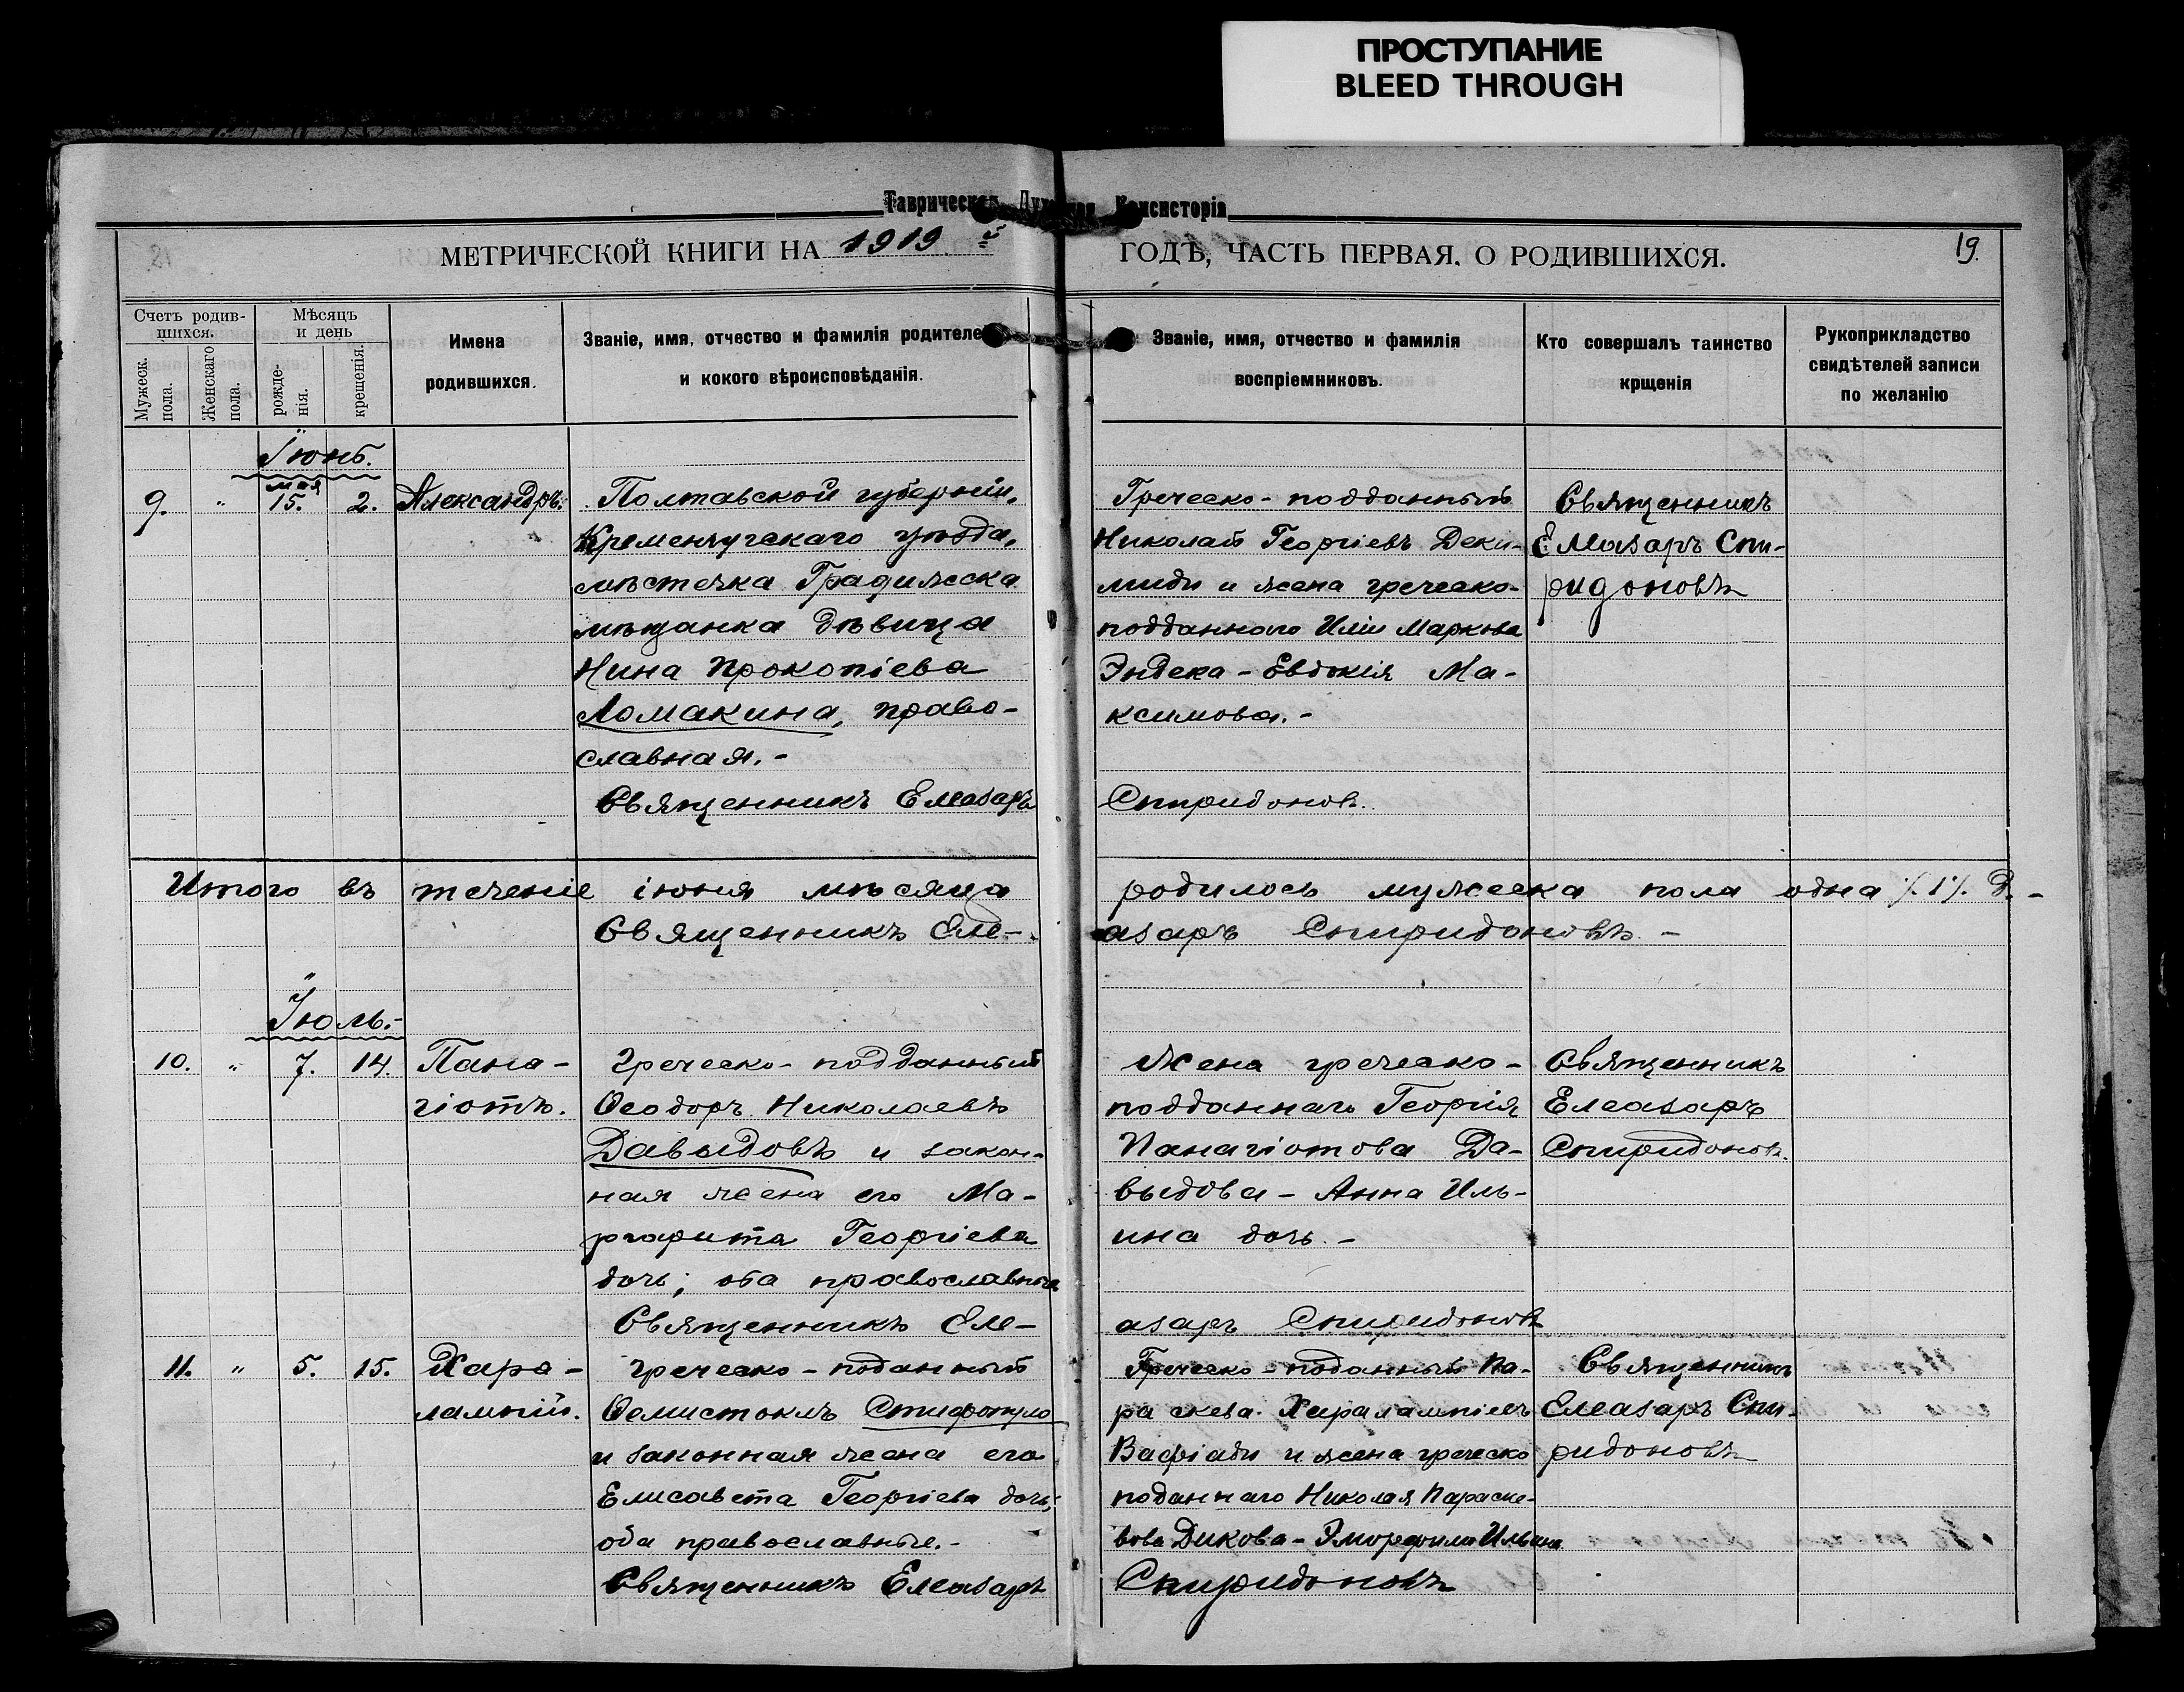 ПРОСТУПАНИЕ
BLEED THROUGH
Таврическая Духовная Консисторія
МЕТРИЧЕСКОЙ КНИГИ НА 1919
ГОДЪ, ЧАСТЬ ПЕРВАЯ, О РОДИВШИХСЯ.
19.
Счетъ родив-
шихся.
Мужеск.
пола.
Женскаго
пола.
Мѣсяцъ
и день
рожде-
нія.
крещенія.
Имена
родившихся.
Званіе, имя, отчество и фамилія родителей
и кокого вѣроисповѣданія.
Званіе, имя, отчество и фамилія
воспріемниковъ.
Кто совершалъ таинство
крщенія
Рукоприкладство
свидѣтелей записи
по желанію
Іюнь.
мая
9. " 15. 2. Александръ.
Полтавской губерніи,
Кременчугскаго уѣзда,
мѣстечка Градижска
мѣщанка дѣвица
Нина Прокопіева
Ломакина, право-
славная.-
Священникъ Елеазаръ
Греческо-подданный
Николай Георгіевъ Деки-
миди и жена греческо-
подданного Иліи Маркова
Эндека - Евдокія Ма-
ксимова.-
Спиридоновъ.
Священникъ
Елеазаръ Спи-
ридоновъ
Итого въ теченіе іюня мѣсяца родилось мужеска пола одна /.1/. д.-
Священникъ Еле-
азаръ Спиридоновъ.-
Іюль.-
10. " 7. 14. Пана-
гіотъ.
Греческо-подданный
Ѳеодоръ Николаевъ
Давыдовъ и закон-
ная жена его Ма-
ргарита Георгіева
дочь; оба православные
Священникъ Еле-
Жена греческо-
подданнаго Георгія
Панагіотова Да-
выдова - Анна Иль-
ина дочь.-
азаръ Спиридоновъ
Священникъ
Елеазаръ
Спиридоновъ.
11. " 5. 15. Хара-
лампій.
Греческо-поданный
Ѳемистоклъ Стифопуло
и законная жена его
Елисавета Георгіева дочь;
оба православные.-
Священникъ Елеазаръ
Греческо-поданный Па-
раскева Харалампіевъ
Вафіади и жена греческо
поданнаго Николая Параске-
вова Дикова - Ильина
Спиридоновъ
Священникъ
Елеазаръ Спи-
ридоновъ